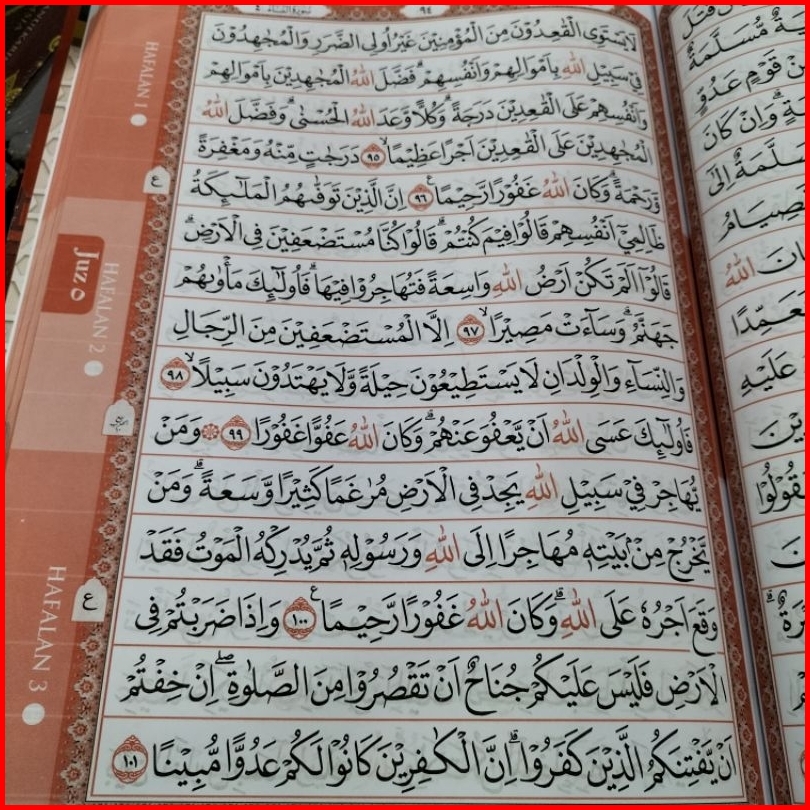 سُوْرَةُ النِّسَاء ٤
٩٤
لَا يَسْتَوِى الْقٰعِدُوْنَ مِنَ الْمُؤْمِنِيْنَ غَيْرُ اُولِى الضَّرَرِ وَالْمُجٰهِدُوْنَ
فِيْ سَبِيْلِ اللّٰهِ بِاَمْوَالِهِمْ وَاَنْفُسِهِمْۗ فَضَّلَ اللّٰهُ الْمُجٰهِدِيْنَ بِاَمْوَالِهِمْ
وَاَنْفُسِهِمْ عَلَى الْقٰعِدِيْنَ دَرَجَةً ۗ وَكُلًّا وَّعَدَ اللّٰهُ الْحُسْنٰىۗ وَفَضَّلَ اللّٰهُ
الْمُجٰهِدِيْنَ عَلَى الْقٰعِدِيْنَ اَجْرًا عَظِيْمًاۙ ٩٥ دَرَجٰتٍ مِّنْهُ وَمَغْفِرَةً
وَّرَحْمَةً ۗوَكَانَ اللّٰهُ غَفُوْرًا رَّحِيْمًا ࣖ ٩٦ اِنَّ الَّذِيْنَ تَوَفّٰىهُمُ الْمَلٰۤىِٕكَةُ
ظَالِمِيْٓ اَنْفُسِهِمْ قَالُوْا فِيْمَ كُنْتُمْۗ قَالُوْا كُنَّا مُسْتَضْعَفِيْنَ فِى الْاَرْضِۗ
قَالُوْٓا اَلَمْ تَكُنْ اَرْضُ اللّٰهِ وَاسِعَةً فَتُهَاجِرُوْا فِيْهَاۗ فَاُولٰۤىِٕكَ مَأْوٰىهُمْ
جَهَنَّمُۗ وَسَاۤءَتْ مَصِيْرًاۙ ٩٧ اِلَّا الْمُسْتَضْعَفِيْنَ مِنَ الرِّجَالِ
وَالنِّسَاۤءِ وَالْوِلْدَانِ لَا يَسْتَطِيْعُوْنَ حِيْلَةً وَّلَا يَهْتَدُوْنَ سَبِيْلًاۙ ٩٨
فَاُولٰۤىِٕكَ عَسَى اللّٰهُ اَنْ يَّعْفُوَ عَنْهُمْۗ وَكَانَ اللّٰهُ عَفُوًّا غَفُوْرًا ٩٩ ۞ وَمَنْ
يُّهَاجِرْ فِيْ سَبِيْلِ اللّٰهِ يَجِدْ فِى الْاَرْضِ مُرٰغَمًا كَثِيْرًا وَّسَعَةً ۗوَمَنْ
يَّخْرُجْ مِنْۢ بَيْتِهٖ مُهَاجِرًا اِلَى اللّٰهِ وَرَسُوْلِهٖ ثُمَّ يُدْرِكْهُ الْمَوْتُ فَقَدْ
وَقَعَ اَجْرُهٗ عَلَى اللّٰهِ ۗوَكَانَ اللّٰهُ غَفُوْرًا رَّحِيْمًا ࣖ ١٠٠ وَاِذَا ضَرَبْتُمْ فِى
الْاَرْضِ فَلَيْسَ عَلَيْكُمْ جُنَاحٌ اَنْ تَقْصُرُوْا مِنَ الصَّلٰوةِ ۖ اِنْ خِفْتُمْ
اَنْ يَّفْتِنَكُمُ الَّذِيْنَ كَفَرُوْاۗ اِنَّ الْكٰفِرِيْنَ كَانُوْا لَكُمْ عَدُوًّا مُّبِيْنًا ١٠١
HAFALAN 1
ع
Juz ٥
HAFALAN 2
HAFALAN 3
ع
مُّسَلَّمَةٌ
مِنْ قَوْمٍ عَدُوٍّ
وَاِنْ كَانَ
اِلٰٓى
فَصِيَامُ
اللّٰهُ
عَلَيْهِ